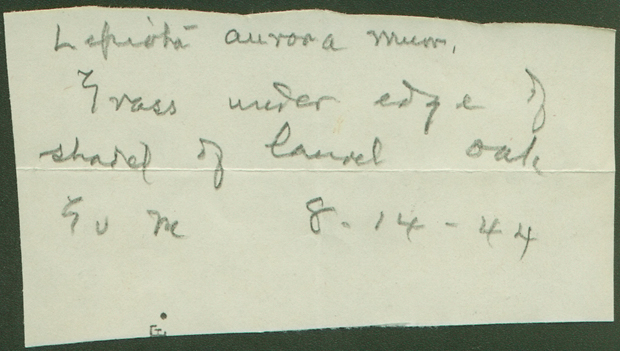 Lepiota aurora Murr.
Grass under edge of
shade of laurel oak
G v M 8-14-44